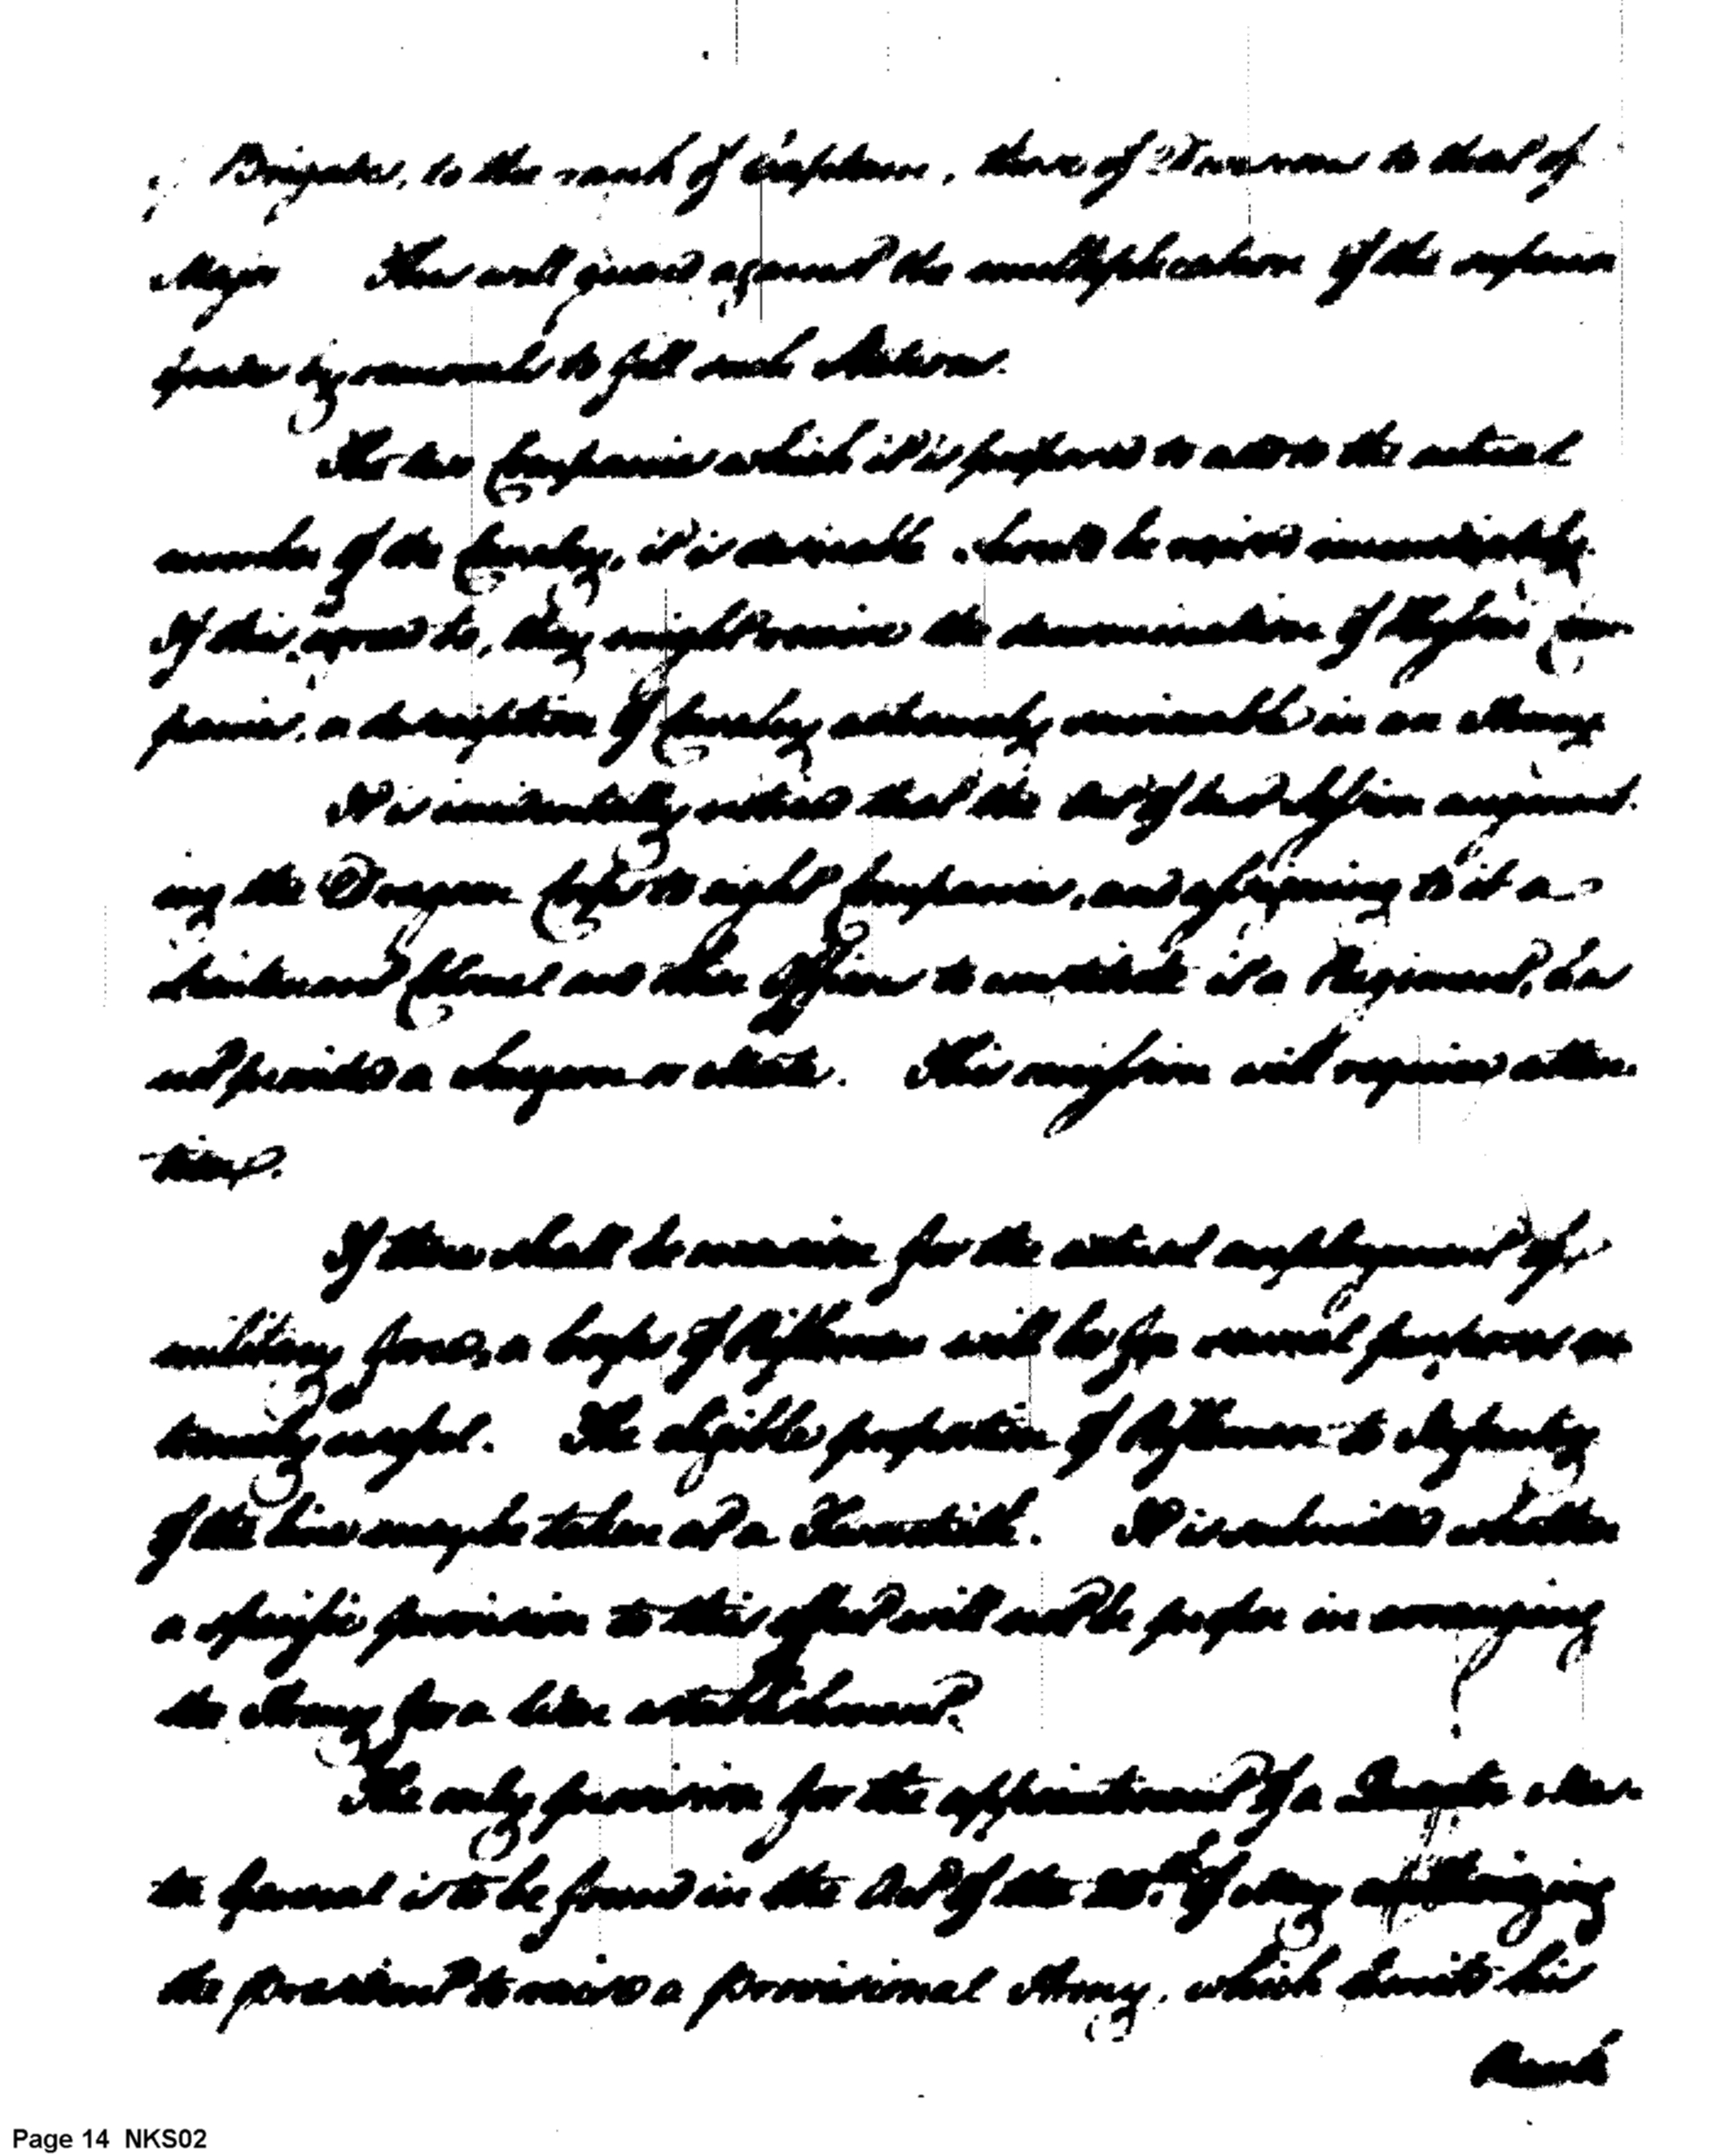 of Brigades, to the rank of Captain, those of Divisions to that of
Major This will guard against the multiplication of the superior
grades by removals to fill such stations.
The two Companies which it is proposed to add to the actual
number of the Cavalry, it is desirable should be raised immediately.
If this is agreed to, they might receive the denomination of
a description of Cavalry extremely in an Army
It is understood that the act of last Session augment-
ing the Dragoon Corps to eight Companies, and assigning to it a
Lieutenant Colonel and other Officers to constitute it a Regiment, has
not provided a Surgeon or Mate. This omission will require atten-
tion.
If there shall be occasion for the actual employment of
military force, a corps of Riflemen will be for several purposes ex-
tremely useful. The eligible proportion of Riflemen to Infantry
of the line may be taken at a Twentieth. It is submitted whether
a specific provision to this effect will not be proper in arranging
the Army for a War establishment?
The only provision for the appointment of a Quarter Mas-
ter General is to be found in the Act of the 28th of May authorizing
the president to raise a provisional Army, which limits his
Rank